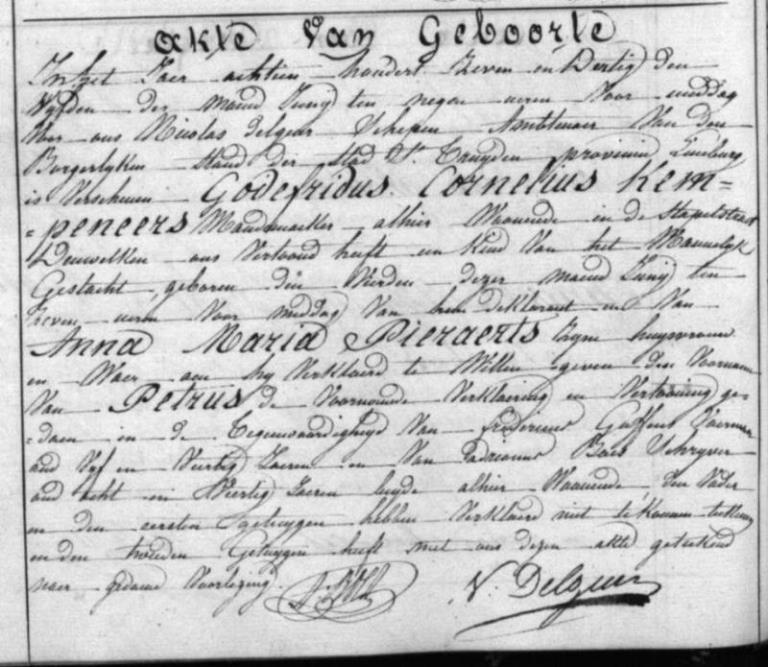 akte Van Geboorte
In het Jaer achtien honderd Zeven en Dertig den
Vyfden der maend Juny ten negen uren Voor middag
Voor ons Nicolas Delgeur Schepen Ambtenaer Van den
Borgerlyken Stand der Stad St Truyden provincie Limburg
is Verschenen Godefridus Cornelius Kem=
=peneers Mandemaeker alhier Woonende in de Stapelstraet
Dewelken ons Vertoond heeft een Kind Van het Mannelyk
Geslacht geboren den Vierden dezer maend Juny ten
Zeven uren Voor middag Van hem deklarant en Van
Anna Maria Pieraerts Zyne huysvrouw
en Waer aen hy Verklaerd te Willen geven den Voornaem
Van Petrus de Voornoemde Verklaering en Vertooning ge=
=daen in de Tegenwoordigheyd Van
oud Vyf en Veertig Jaeren en Van Schryver
oud acht en Veertig Jaeren beyde alhier Woonende den Vader
en den eersten getuygen hebben Verklaerd niet te konnen teekenen
en den tweeden Getuygen heeft met ons dezen akte geteekend
naer gedaene Voorlezing
N. Delgeur